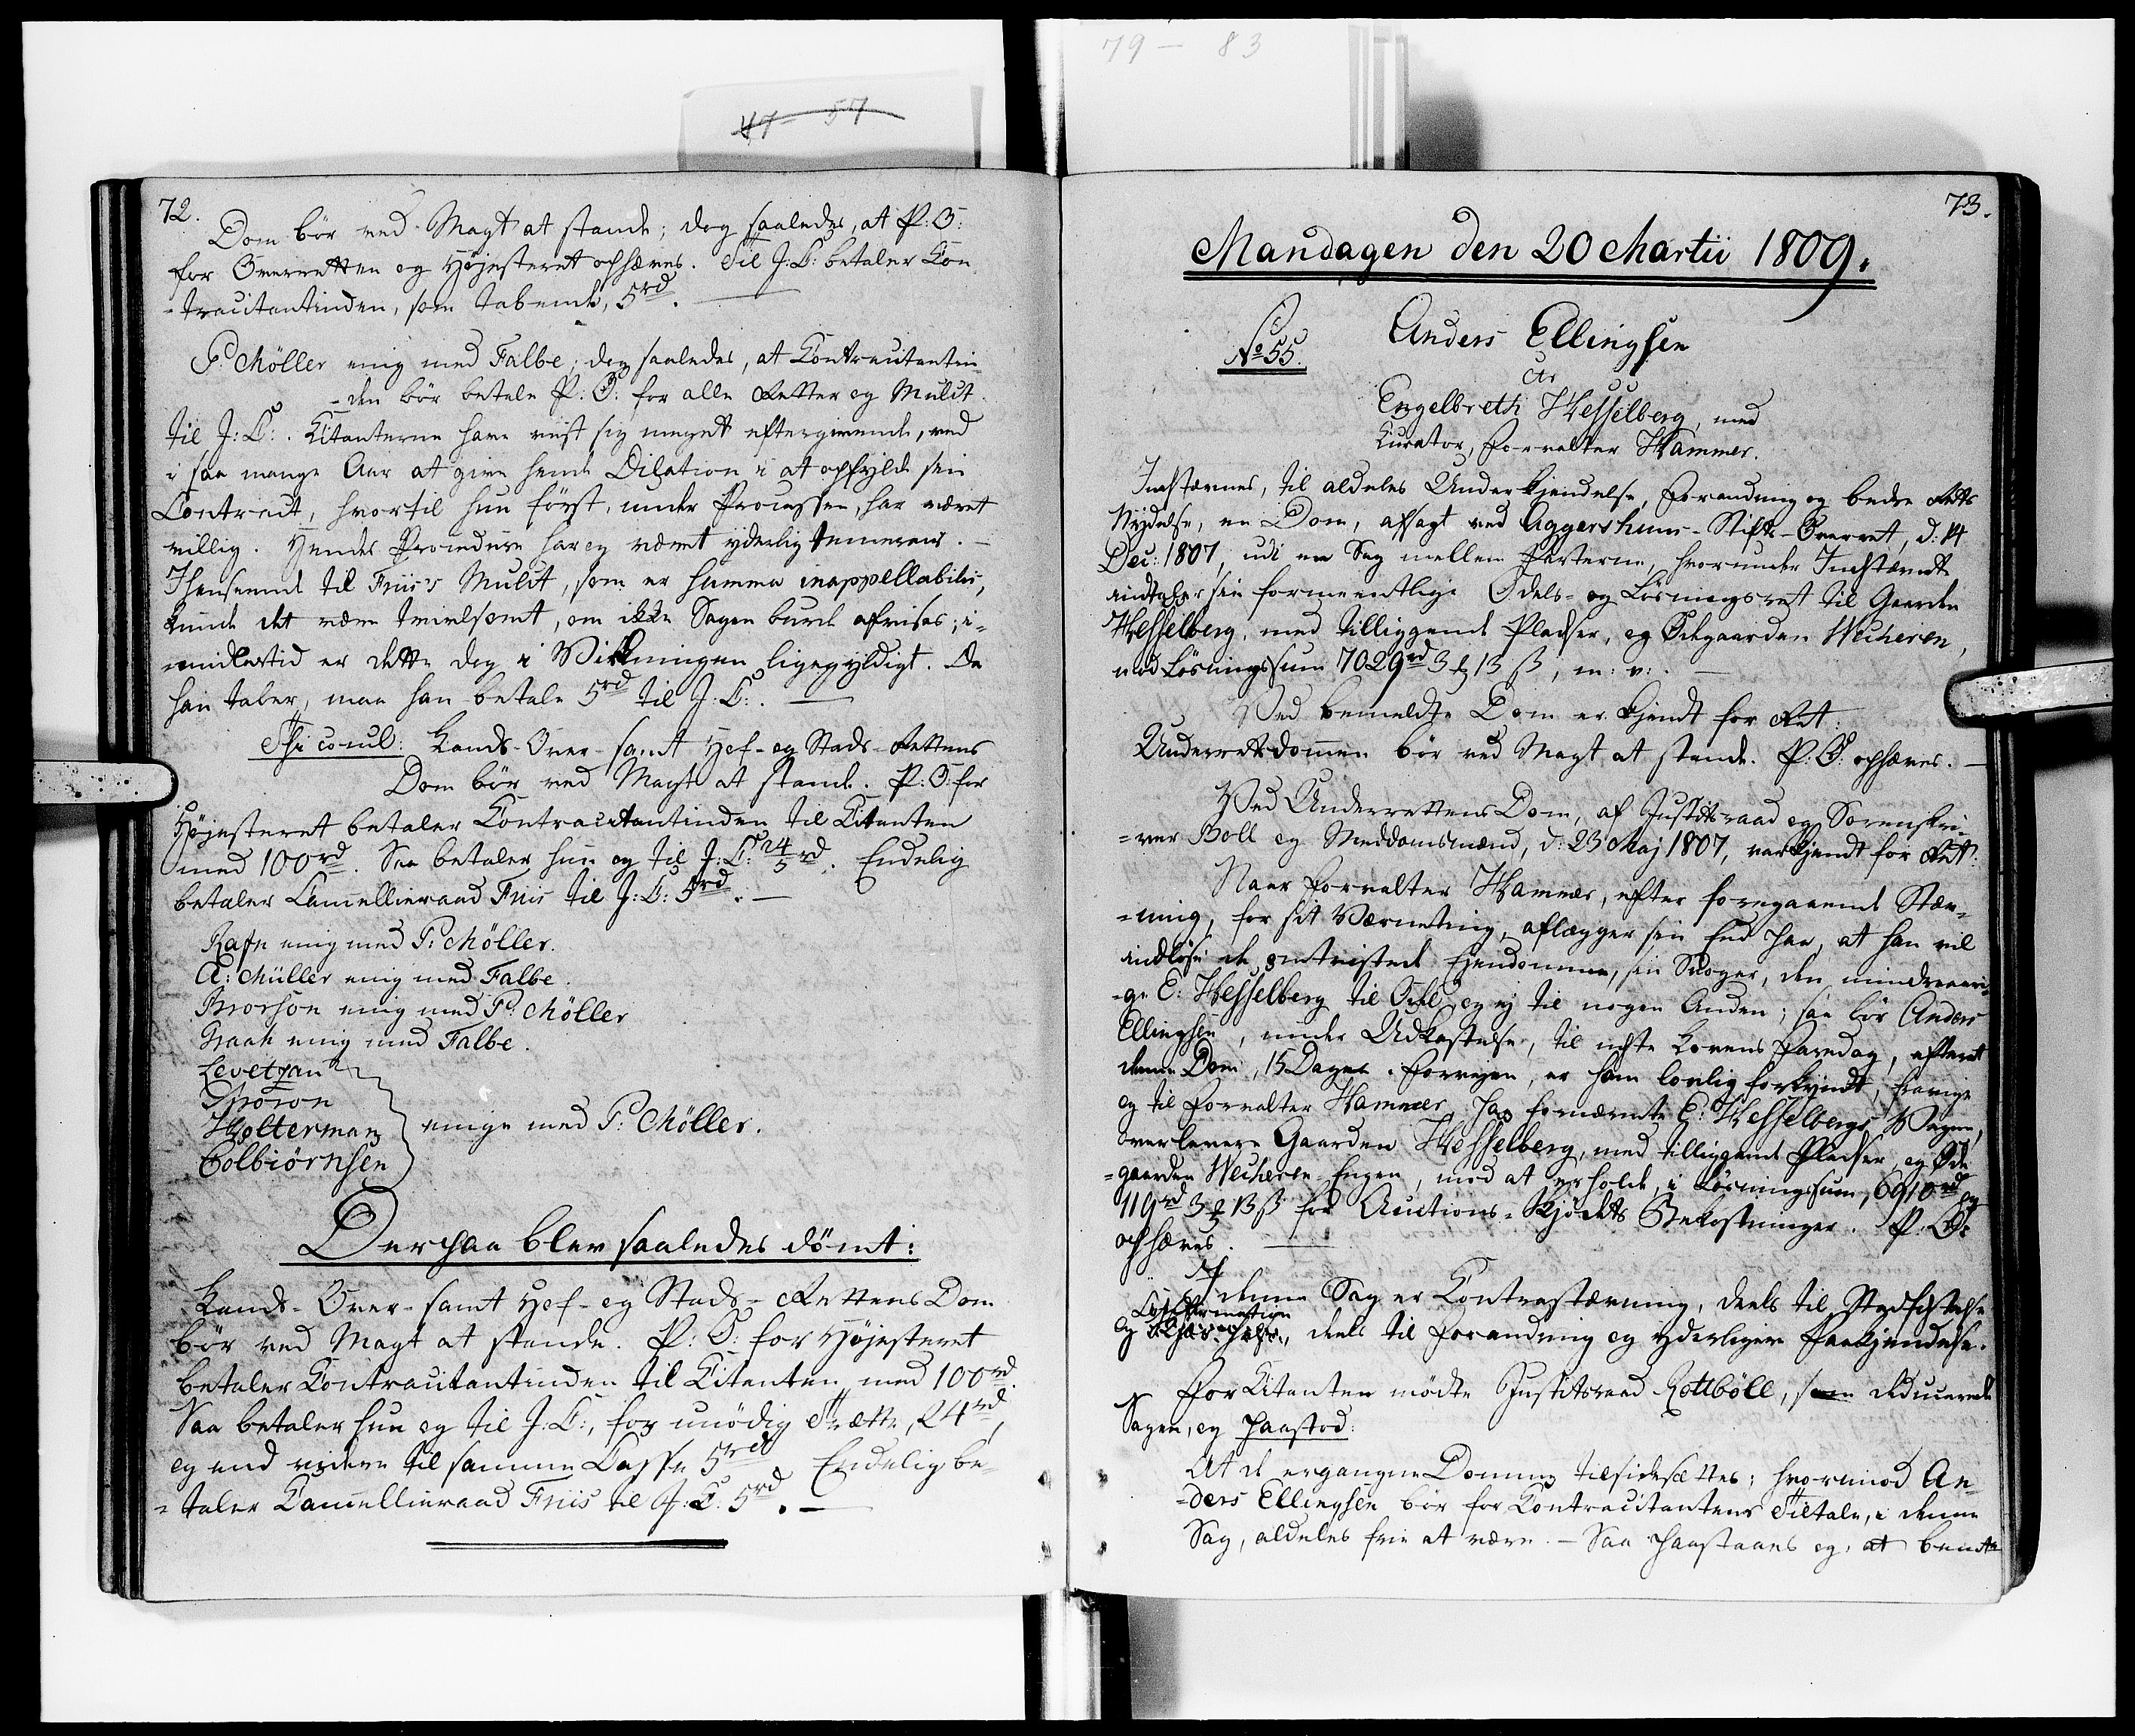 79 - 83
47 - 57
72.
Dom bør ved Magt at stande; dog saaledes, at P: O:
for Overretten og Højesteret ophæves. Til J: C: betaler Con
-tracitantinden, som tabende, 5rd.
P: Møller enig med Falbe; dog saaledes, at Contracitantin-
-den bør betale P: O: for alle Retter og Mulct
til J: C:. Citanterne have viist sig meget eftergivende, ved
i saa mange Aar at give hende Dilation i at opfylde sin
Contract, hvortil hun først, under Processen, har været
villig. Hendes Procedure har og været yderlig temerair. —
I Henseende til Friis's Mulct, som er summa inappellabilis,
kunde det være tvivlsomt, om ikke Sagen burde afvises; i-
midlertid er dette dog i Virkningen ligegyldigt. Da
han taber, maa han betale 5rd til J: C:. —
Thi concl: Lands-Over- samt Hof- og Stads-Rettens
Dom bør ved Magt at stande. P: O: for
Højesteret betaler Contracitantinden til Citanten
med 100rd. Saa betaler hun og til J: C: 24/5 rd. Endelig
betaler Cancellieraad Friis til J: C: 5rd. —
Rafn enig med P: Møller.
A: Müller enig med Falbe.
Brorson enig med P: Møller
Kaah enig med Falbe.
Levetzau
Thoron
Holterman
Colbiørnsen
enige med P: Møller.
Derpaa blev saaledes dømt:
Lands-Over- samt Hof- og Stads-Rettens Dom
bør ved Magt at stande. P: O: for Højesteret
betaler Contracitantinden til Citanten med 100rd.
Saa betaler hun og til J: C:, for unødig Trætte, 24rd,
og end videre til samme Casse 5rd. Endelig be-
-taler Cancellieraad Friis til J: C: 5rd. —
73.
Mandagen den 20 Martii 1809.
No 55.
Anders Ellingsen
ctr
Engelbreth Hesselberg, med
Curator, Forvalter Hammer.
Indstævnes, til aldeles Underkjendelse, Forandring og bedre Retts
Nydelse, en Dom, afsagt ved Aggershuus-Stifts-Overret, d: 14
Dec: 1807, udi en Sag mellem Parterne, hvorunder Indstævnte
indtaler sin formeentlige Odels- og Løsningsret til Gaarden
Hesselberg, med tilliggende Pladser, og Ødegaarden Wecheren,
mod Løsningssum 7029rd 3 ₰ 13 ß, m: v: —
Ved bemeldte Dom er kjendt for Ret:
Underretsdommen bør ved Magt at stande. P: O: ophæves. —
Ved Underrettens Dom, af Justitsraad og Sorenskri-
-ver Boll og Meddomsmænd, d: 23 Maj 1807, var kjendt for Ret:
Naar Forvalter Hammer, efter foregaaende Stæv-
-ning, for sit Værneting, aflægger sin Eed paa, at han vil
indløse de omtvistede Ejendomme, sin Svoger, den mindreaari-
-ge E: Hesselberg til Odel og ej til nogen Anden; saa bør Anders
Ellingsen, under Udkastelse, til næste Lovens Faredag, efterat
denne Dom, 15 Dage forvejen, er ham lovlig forkyndt, fravige
og til Forvalter Hammer, paa fornævnte E: Hesselbergs Vegne,
overlevere Gaarden Hesselberg, med tilliggende Pladser og Øde-
-gaarden Wecheren Engen, mod at erholde, i Løsningssum, 6910rd og
119rd 3 ₰ 13 ß for Auctions-Skjødets Bekostninger. P: O:
ophæves. —
I denne Sag er Contrastævning, deels til Stadfæstelse
og Confirmation, deels til Forandring og yderligere Paakjendelse.
For Citanten mødte Justitsraad Rottbøll, som deducerede
Sagen, og paastod:
At de ergangne Domme tilsidesættes; hvorimod An-
-ders Ellingsen bør for Contracitantens Tiltale, i denne
Sag, aldeles frie at være. — Saa paastaaes og, at benæ